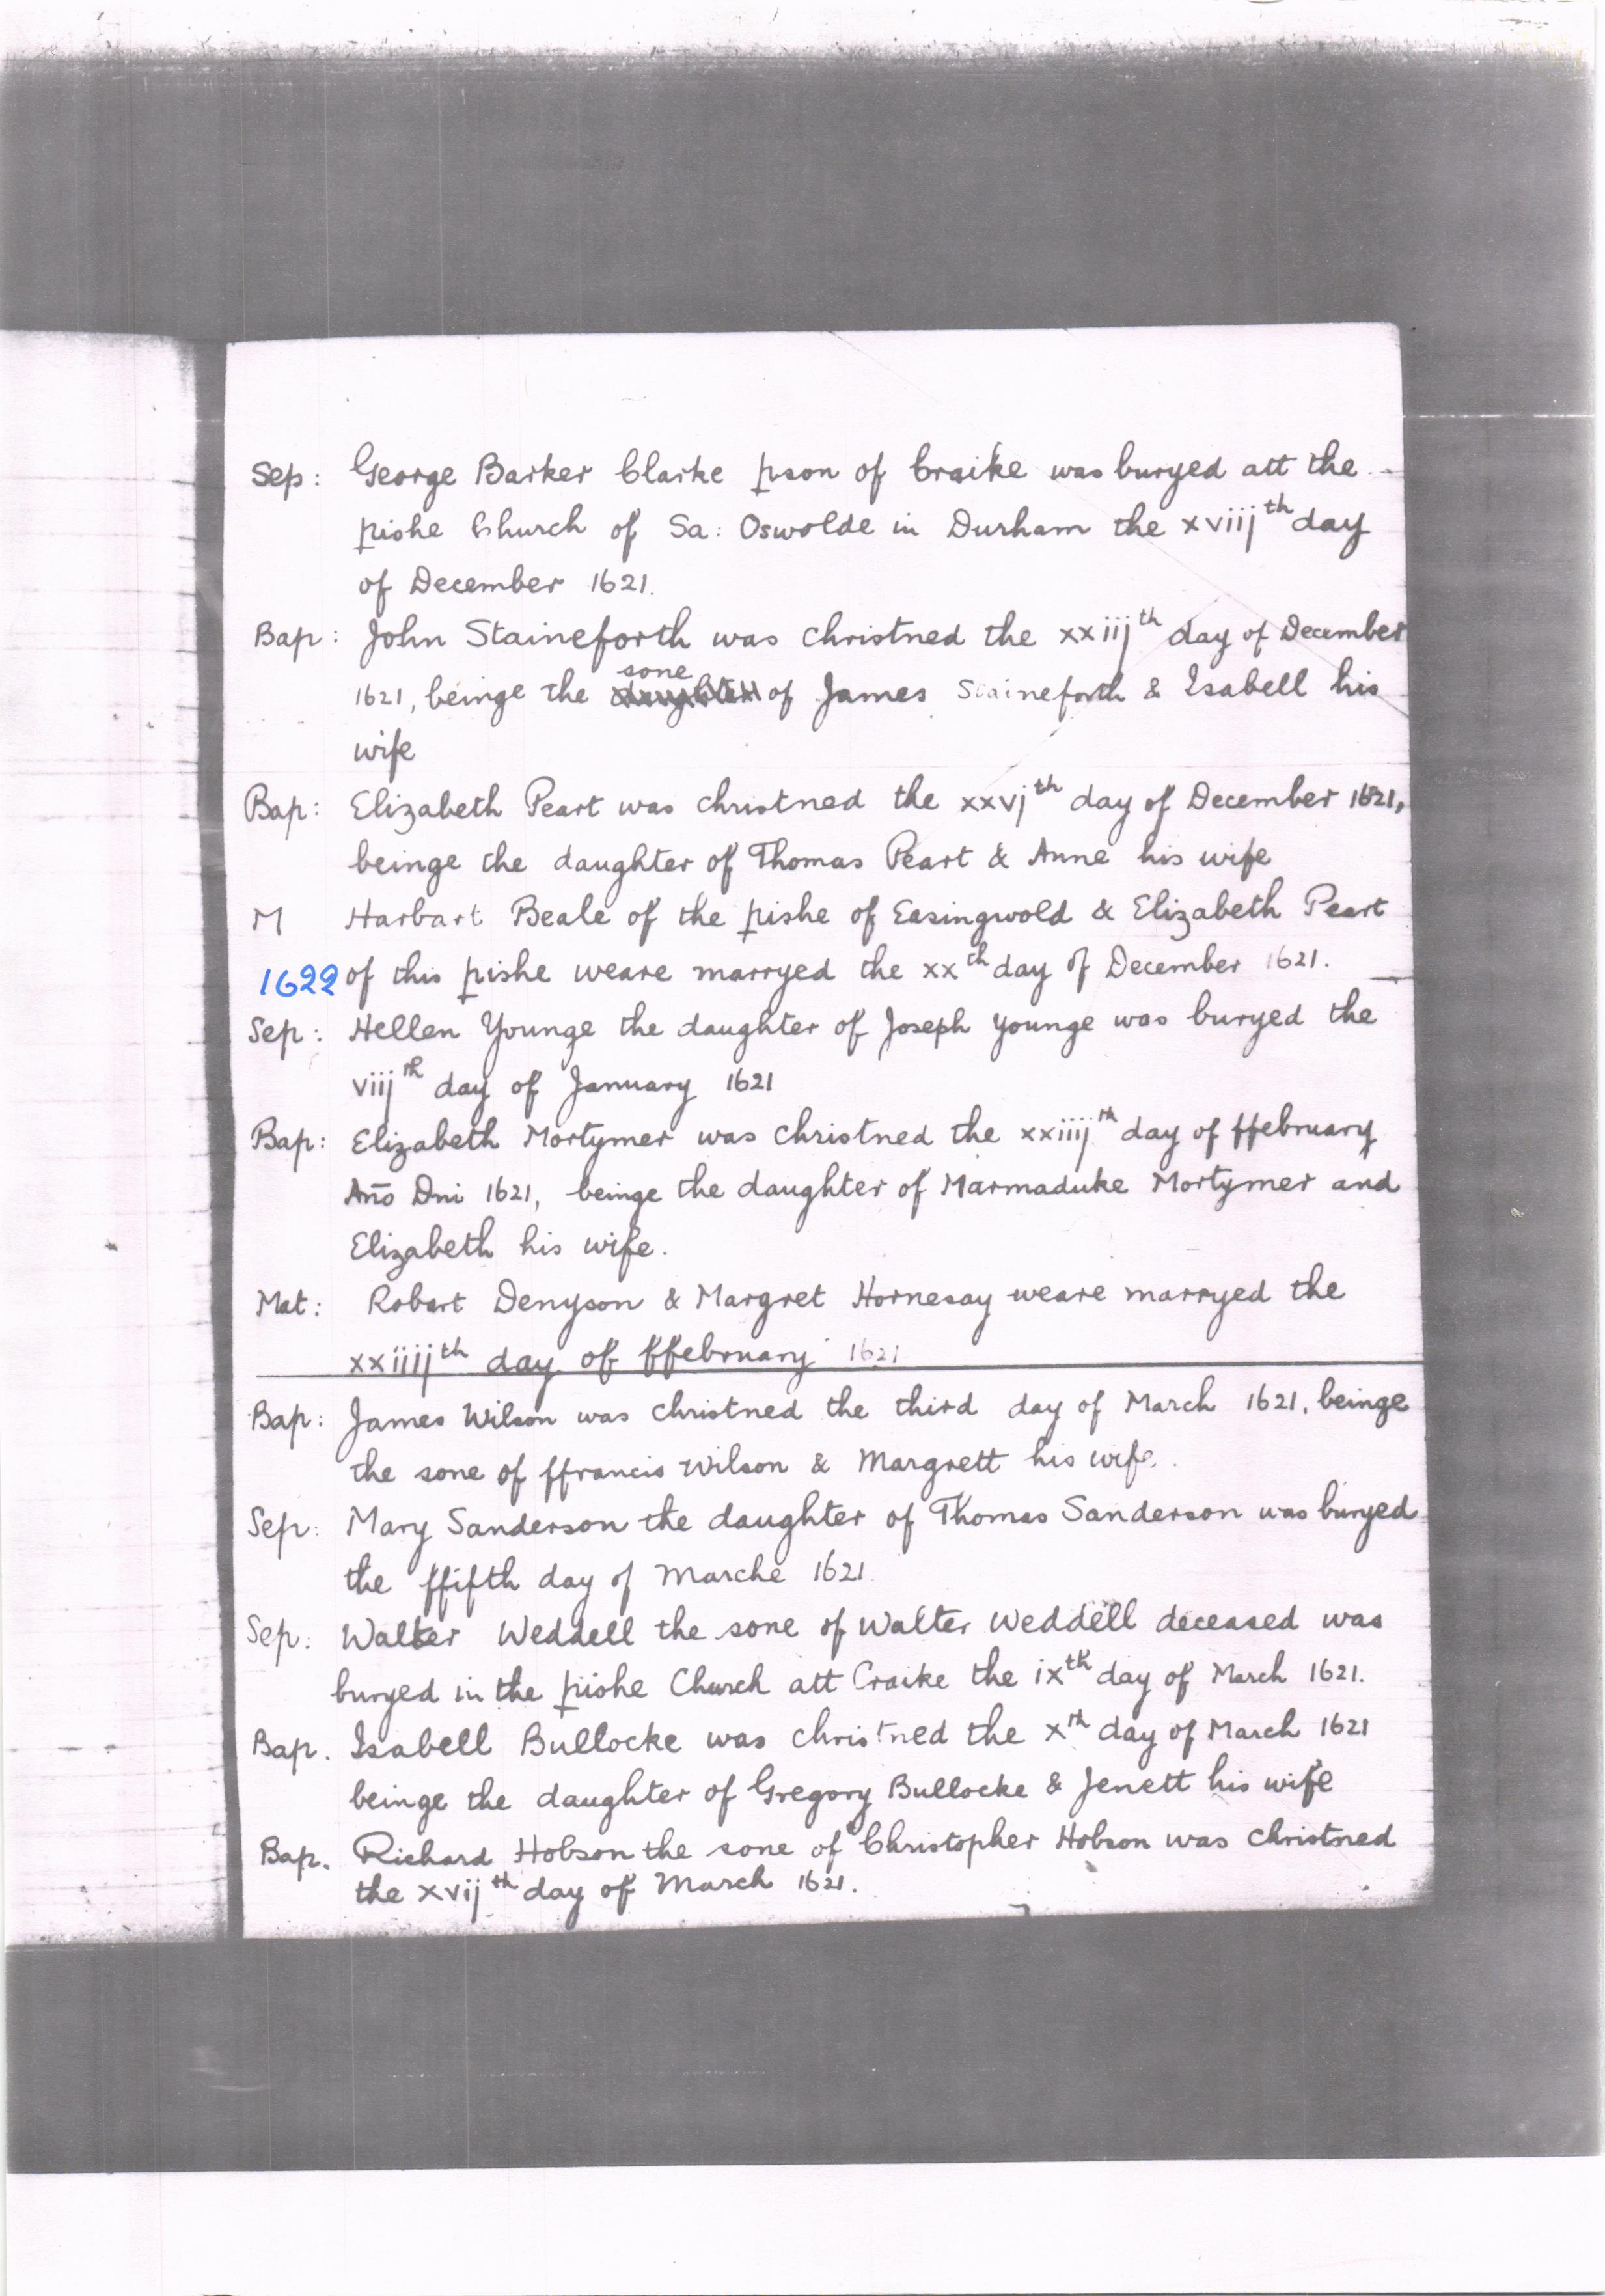 Sep: George Barker Clarke pson of Craike was buryed att the
pishe Church of Sa: Oswolde in Durham the xviijth day
of December 1621.
Bap: John Staineforth was christned the xxiijth day of December
sone
1621, beinge the daughter of James Staineforth & Isabell his
wife
Bap: Elizabeth Peart was christned the xxvjth day of December 1621,
beinge the daughter of Thomas Peart & Anne his wife
M Harbart Beale of the pishe of Easingwold & Elizabeth Peart
1622 of this pishe weare marryed the xxth day of December 1621.
Sep: Hellen Younge the daughter of Joseph Younge was buryed the
viijth day of January 1621
Bap: Elizabeth Mortymer was christned the xxiiijth day of ffebruary
Año Dni 1621, beinge the daughter of Marmaduke Mortymer and
Elizabeth his wife.
Mat: Robart Denyson & Margret Hornesay weare marryed the
xxiiijth day of ffebruary 1621
Bap: James Wilson was christned the third day of March 1621, beinge
the sone of ffrancis Wilson & Margrett his wife.
Sep: Mary Sanderson the daughter of Thomas Sanderson was buryed
the ffifth day of Marche 1621
Sep: Walter Weddell the sone of Walter Weddell deceased was
buryed in the pishe Church att Craike the ixth day of March 1621.
Bap. Isabell Bullocke was christned the xth day of March 1621
beinge the daughter of Gregory Bullocke & Jenett his wife
Bap. Richard Hobson the sone of Christopher Hobson was christned
the xvijth day of March 1621.